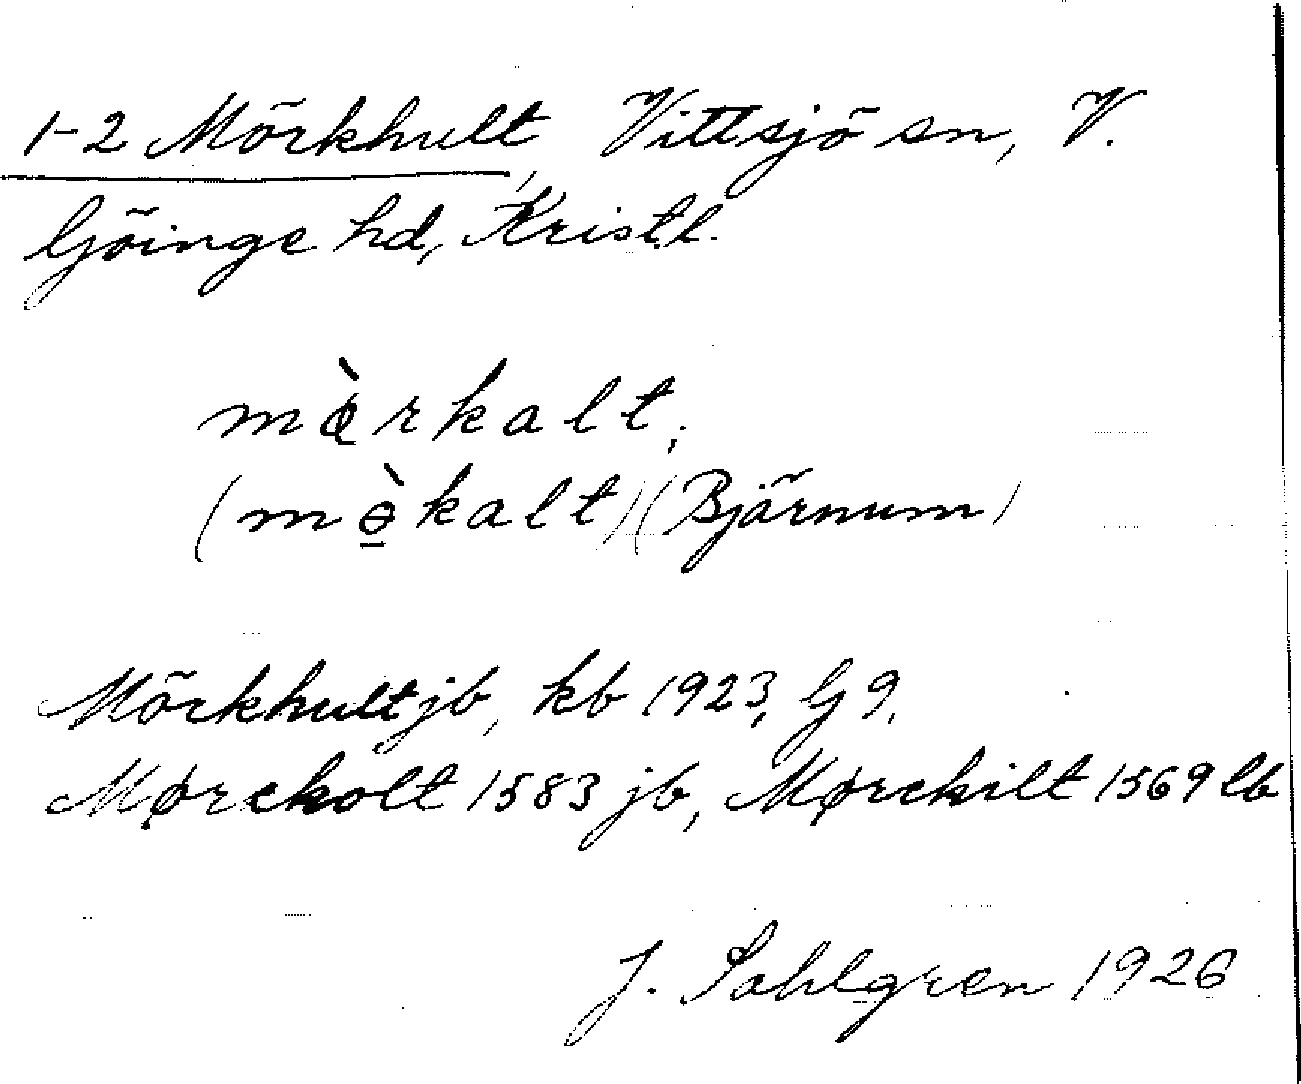 1-2 Mörkhult, Vittsjö sn, V.
Göinge hd, Kristl.
mø̀rkalt,
(mɵ̠̀kalt) (Bjärnum)
Mörkhult jb, kb 1923, G 9.
Mørckolt 1583 jb, Mørckilt 1569 lb
J. Sahlgren 1926